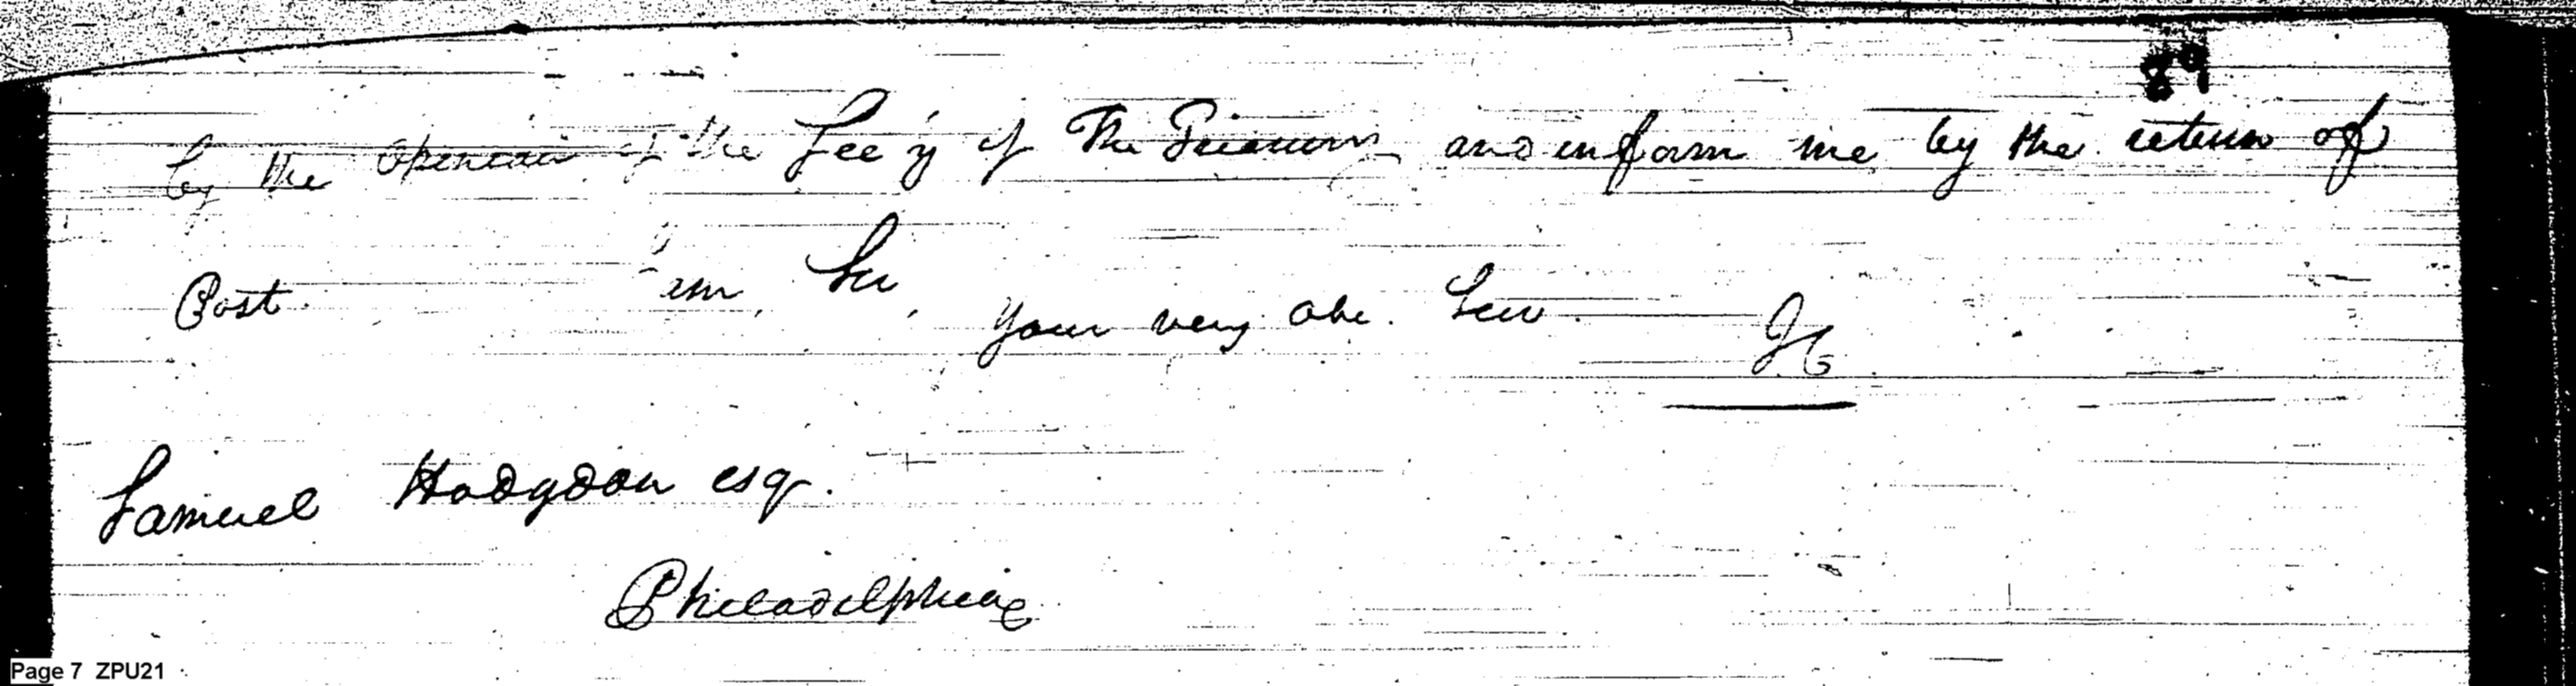 89
by the opinion of the Sec'y of The Treasury and inform me by the return of
Post. am, Sir
your very obe. Serv.
Samuel Hodgdon esqr.
Philadelphia
Page 7 ZPU21